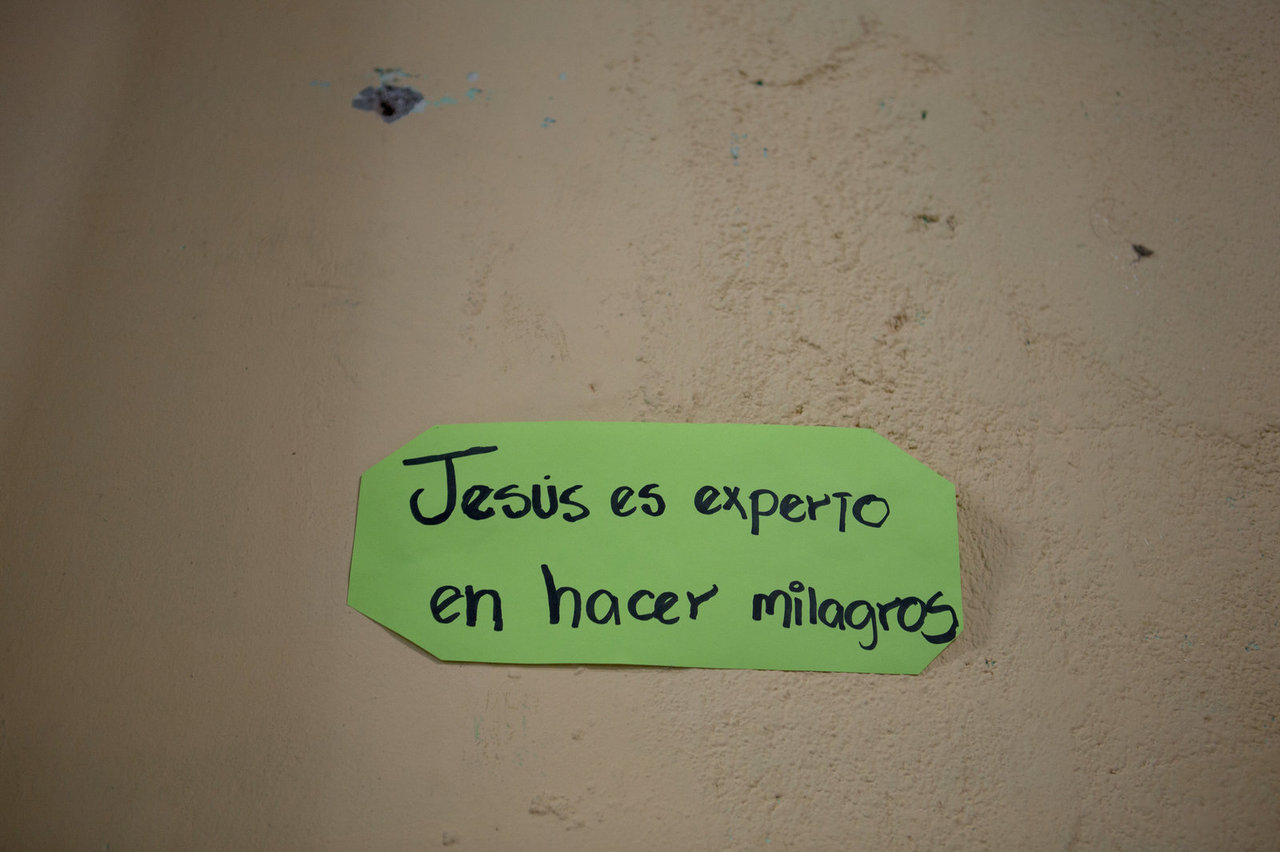 Jesús es experto
en hacer milagros